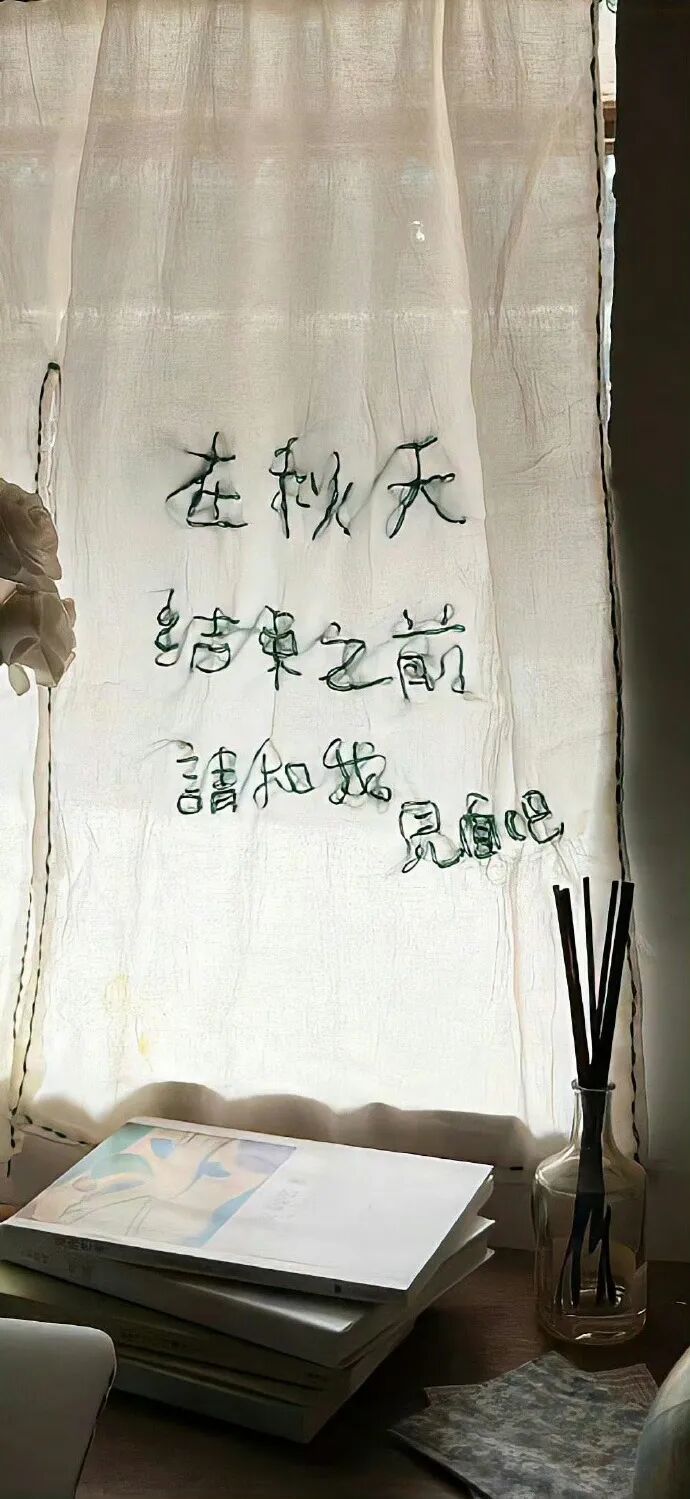 在秋天
結束之前
請和我
見面吧